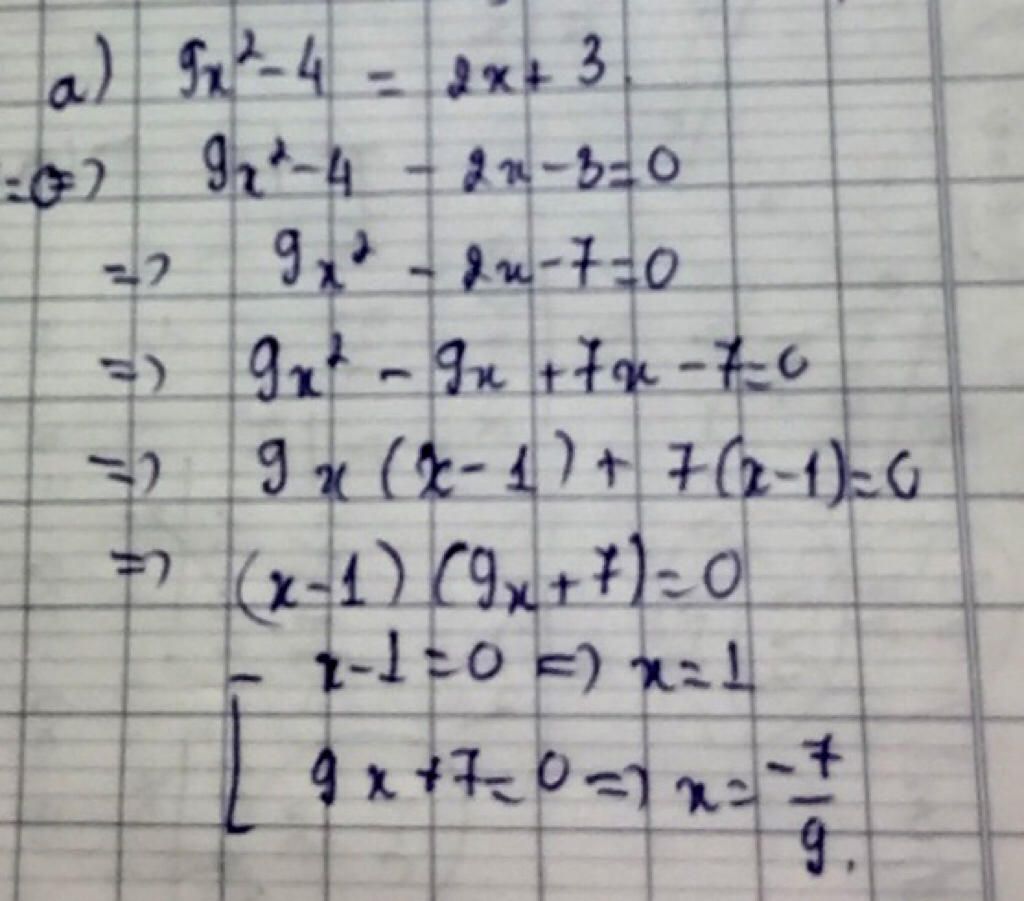 a) 9x² - 4 = 2x + 3.
=> 9x² - 4 - 2x - 3 = 0
=> 9x² - 2x - 7 = 0
=> 9x² - 9x + 7x - 7 = 0
=> 9x (x - 1) + 7(x - 1) = 0
=> (x - 1) (9x + 7) = 0
[ x - 1 = 0 => x = 1
9x + 7 = 0 => x = -7/9.